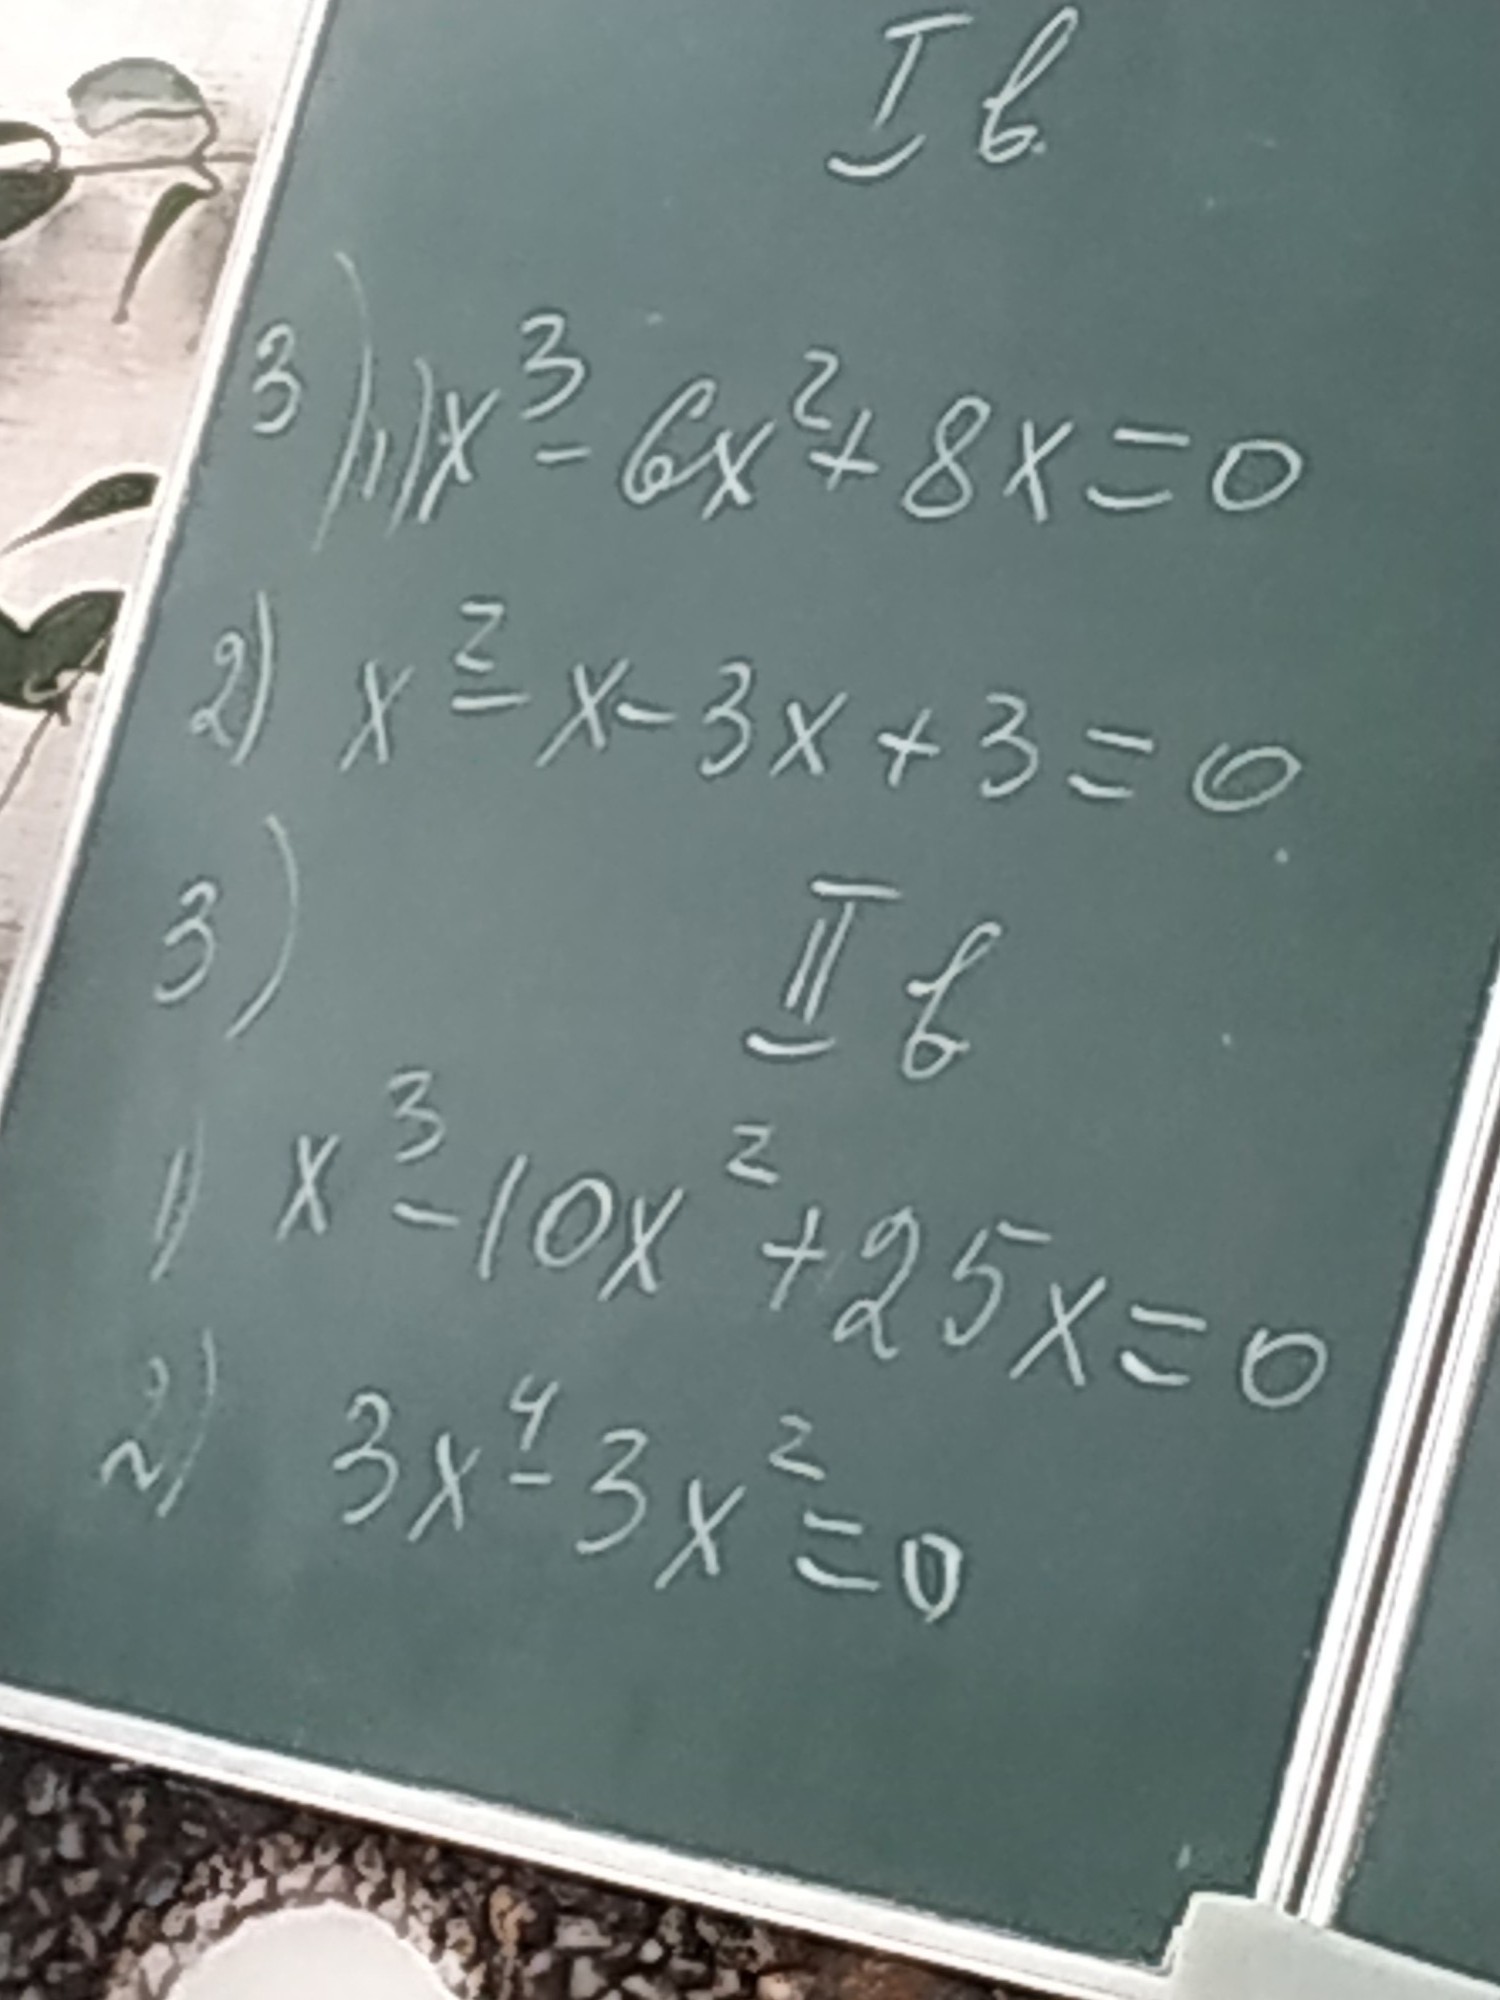 I в.
3) 1) x³ - 6x² + 8x = 0
2) x² - x - 3x + 3 = 0
3) II в
1) x³ - 10x² + 25x = 0
2) 3x⁴ - 3x² = 0